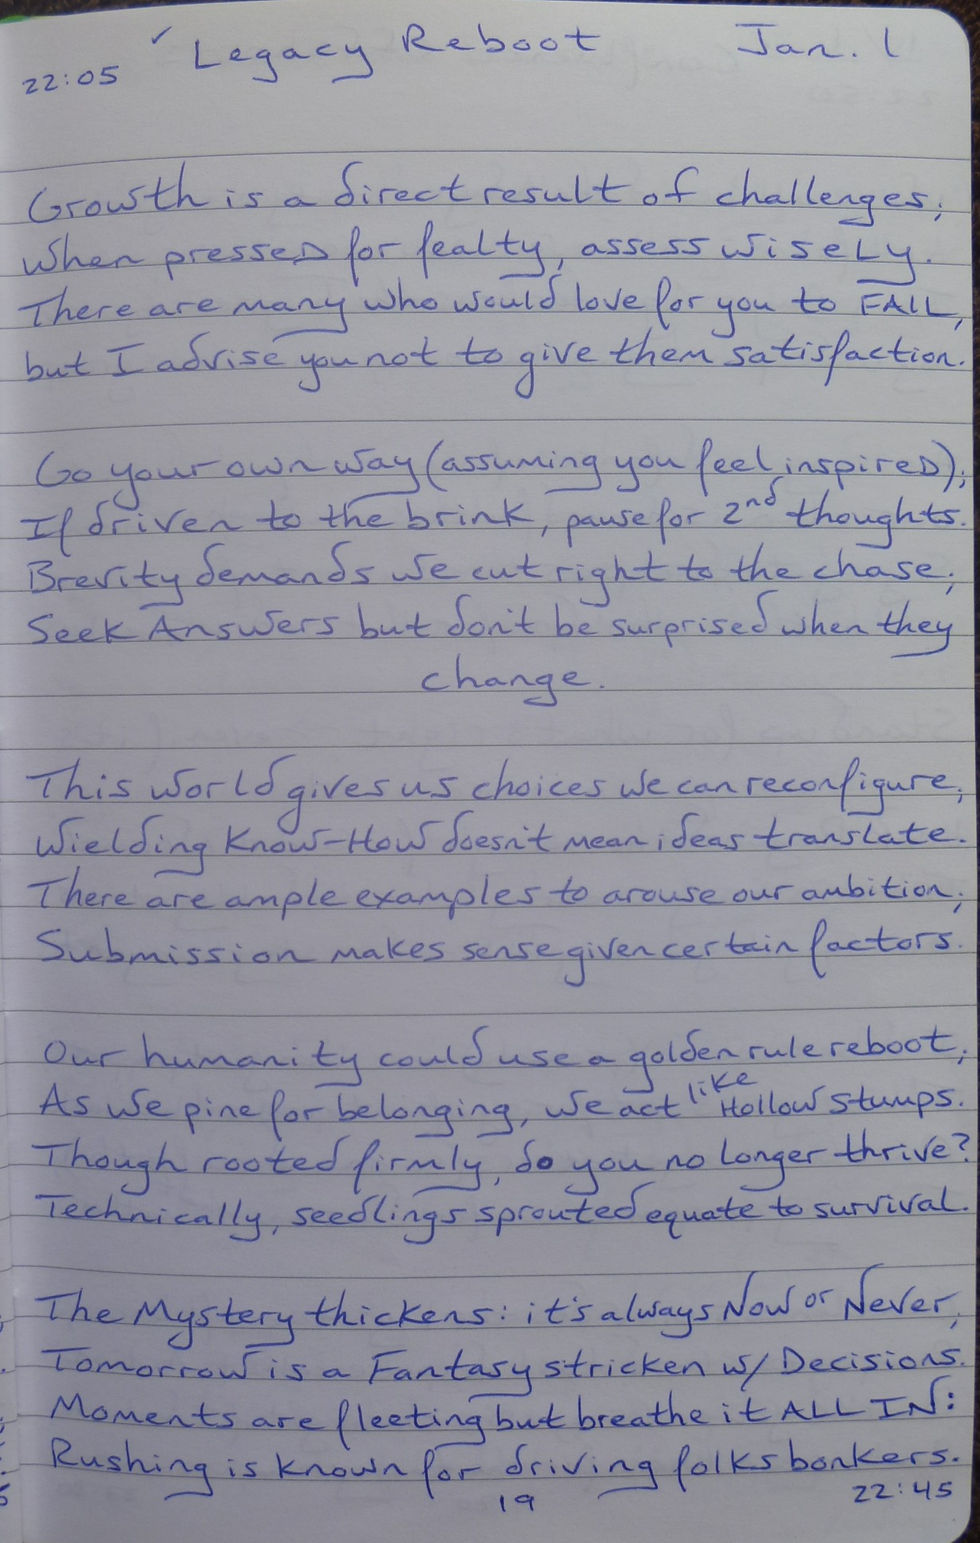 ✓ Legacy Reboot Jan. 1
22:05
Growth is a direct result of challenges;
When pressed for fealty, assess wisely.
There are many who would love for you to FAIL,
but I advise you not to give them satisfaction.
Go your own way (assuming you feel inspired);
If driven to the brink, pause for 2nd thoughts.
Brevity demands we cut right to the chase;
Seek Answers but don't be surprised when they
change.
This world gives us choices we can reconfigure;
Wielding Know-How doesn't mean ideas translate.
There are ample examples to arouse our ambition;
Submission makes sense given certain factors.
Our humanity could use a golden rule reboot;
As we pine for belonging, we act like Hollow stumps.
Though rooted firmly, do you no longer thrive?
Technically, seedlings sprouted equate to survival.
The Mystery thickens: it's always Now or Never,
Tomorrow is a Fantasy stricken w/ Decisions.
Moments are fleeting but breathe it ALL IN:
Rushing is known for driving folks bonkers.
19 22:45